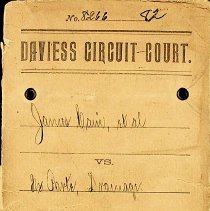 No. 8266 82
DAVIESS CIRCUIT COURT.
James Cain, et al
VS.
Ex Parte, Drainage